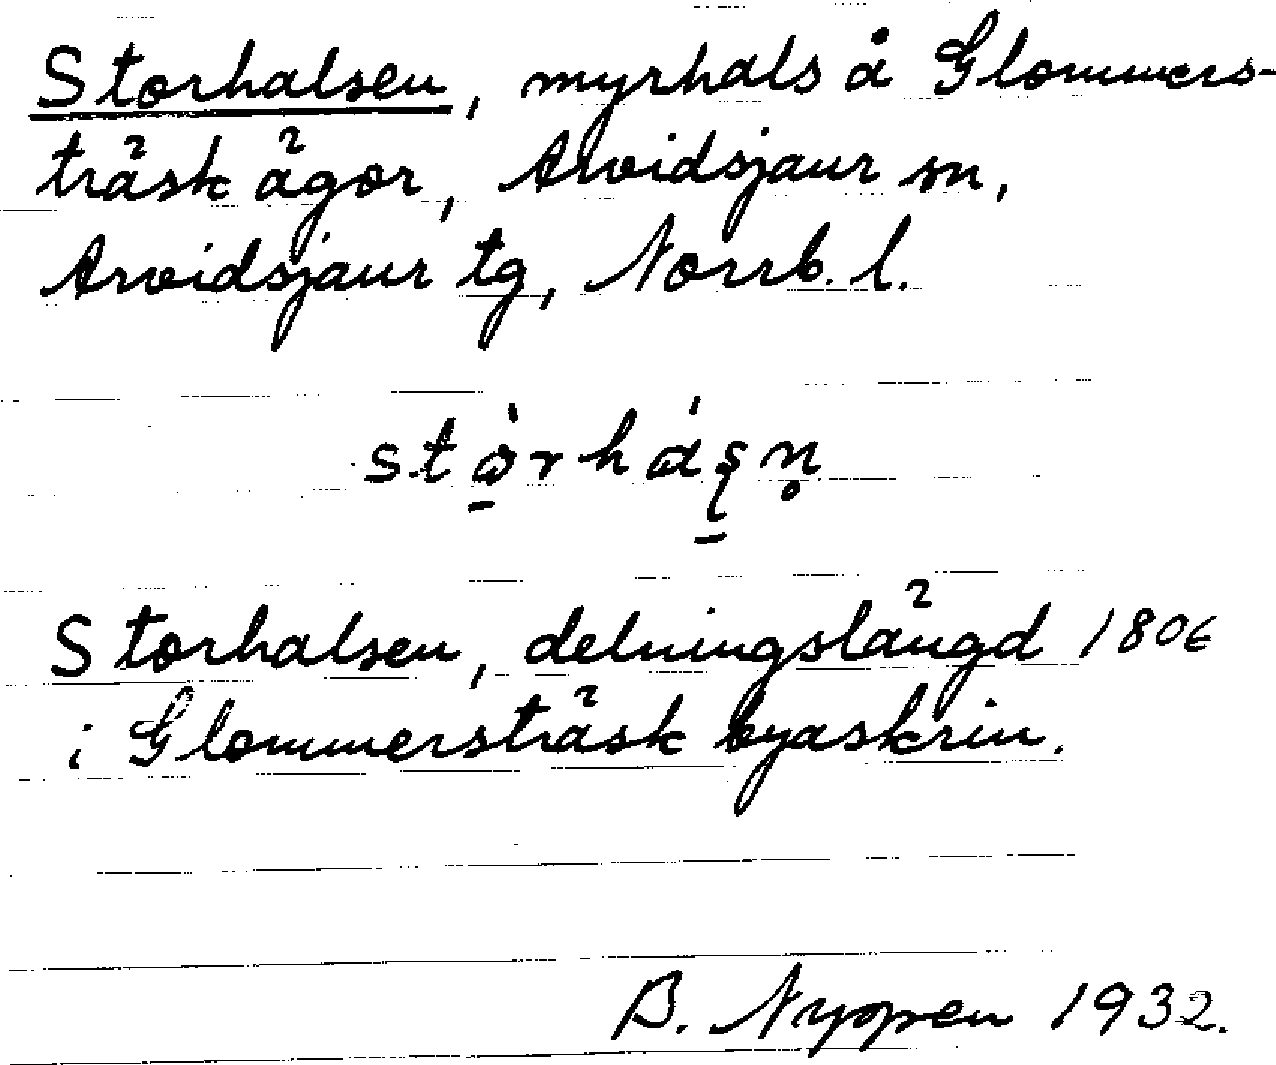 Storhalsen, myrhals å Glommers-
träsk ägor, Arvidsjaur sn,
Arvidsjaur tg, Norrb. l.
Storhalsen, delningslängd 1806
i Glommersträsk byaskrin.
B. Nyppen 1932.